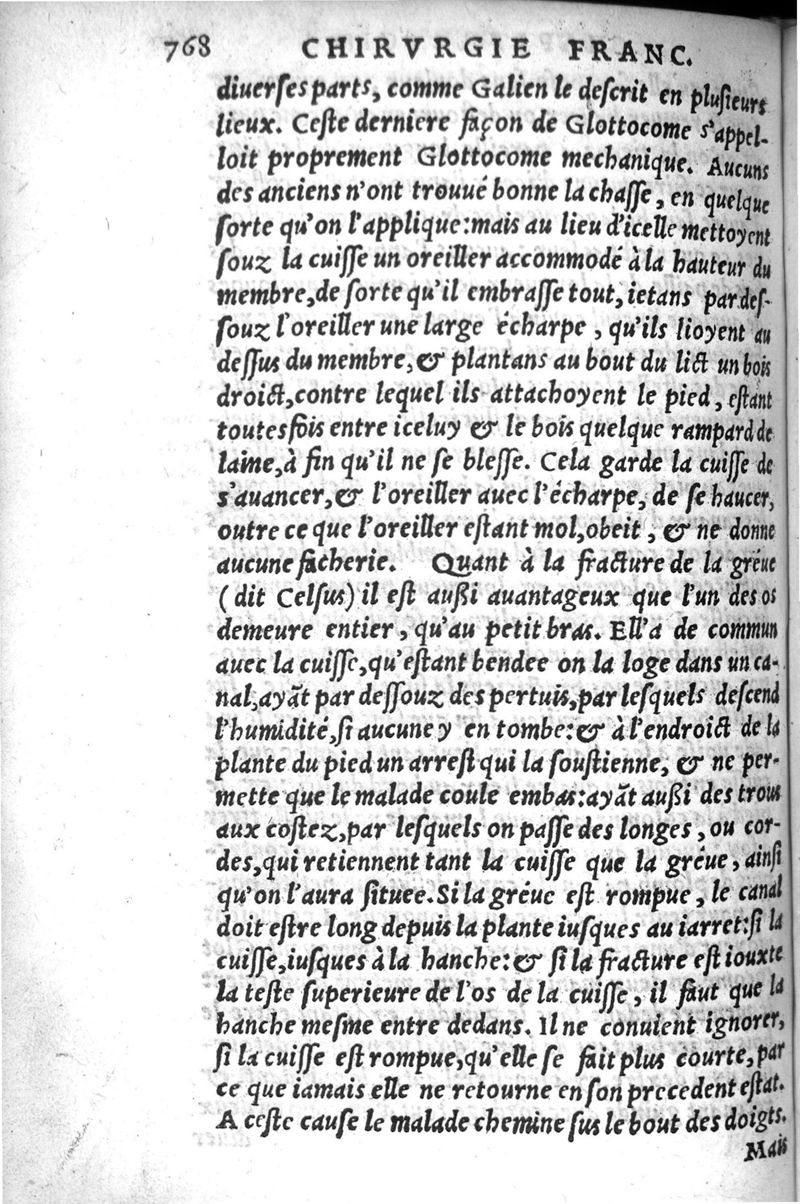 768 CHIRVRGIE FRANC.
diuerſes parts, comme Galien le deſcrit en pluſieurs
lieux. Ceſte derniere façon de Glottocome s'appel-
loit proprement Glottocome mechanique. Aucuns
des anciens n'ont trouué bonne la chaſſe, en quelque
ſorte qu'on l'applique: mais au lieu d'icelle mettoyent
ſouz la cuiſſe un oreiller accommodé à la hauteur du
membre, de ſorte qu'il embraſſe tout, ietans par deſ-
ſouz l'oreiller une large écharpe, qu'ils lioyent au
deſſus du membre, & plantans au bout du lict un bois
droict, contre lequel ils attachoyent le pied, eſtant
toutesfois entre iceluy & le bois quelque rampard de
laine, à fin qu'il ne ſe bleſſe. Cela garde la cuiſſe de
s'auancer, & l'oreiller auec l'écharpe, de ſe haucer,
outre ce que l'oreiller eſtant mol, obeit, & ne donne
aucune facherie. Quant à la fracture de la gréue
(dit Celſus) il eſt außi auantageux que l'un des os
demeure entier, qu'au petit bras. Ell'a de commun
auec la cuiſſe, qu'eſtant bendee on la loge dans un ca-
nal, ayãt par deſſouz des pertuis, par leſquels deſcend
l'humidité, ſi aucune y en tombe: & à l'endroict de la
plante du pied un arreſt qui la ſouſtienne, & ne per-
mette que le malade coule embas: ayãt außi des trous
aux coſtez, par leſquels on paſſe des longes, ou cor-
des, qui retiennent tant la cuiſſe que la gréue, ainſi
qu'on l'aura ſituee. Si la gréue eſt rompue, le canal
doit eſtre long depuis la plante iuſques au iarret: ſi la
cuiſſe, iuſques à la hanche: & ſi la fracture eſt iouxte
la teſte ſuperieure de l'os de la cuiſſe, il faut que la
hanche meſme entre dedans. Il ne conuient ignorer,
ſi la cuiſſe eſt rompue, qu'elle ſe fait plus courte, par
ce que iamais elle ne retourne en ſon precedent eſtat.
A ceſte cauſe le malade chemine ſus le bout des doigts.
Mais